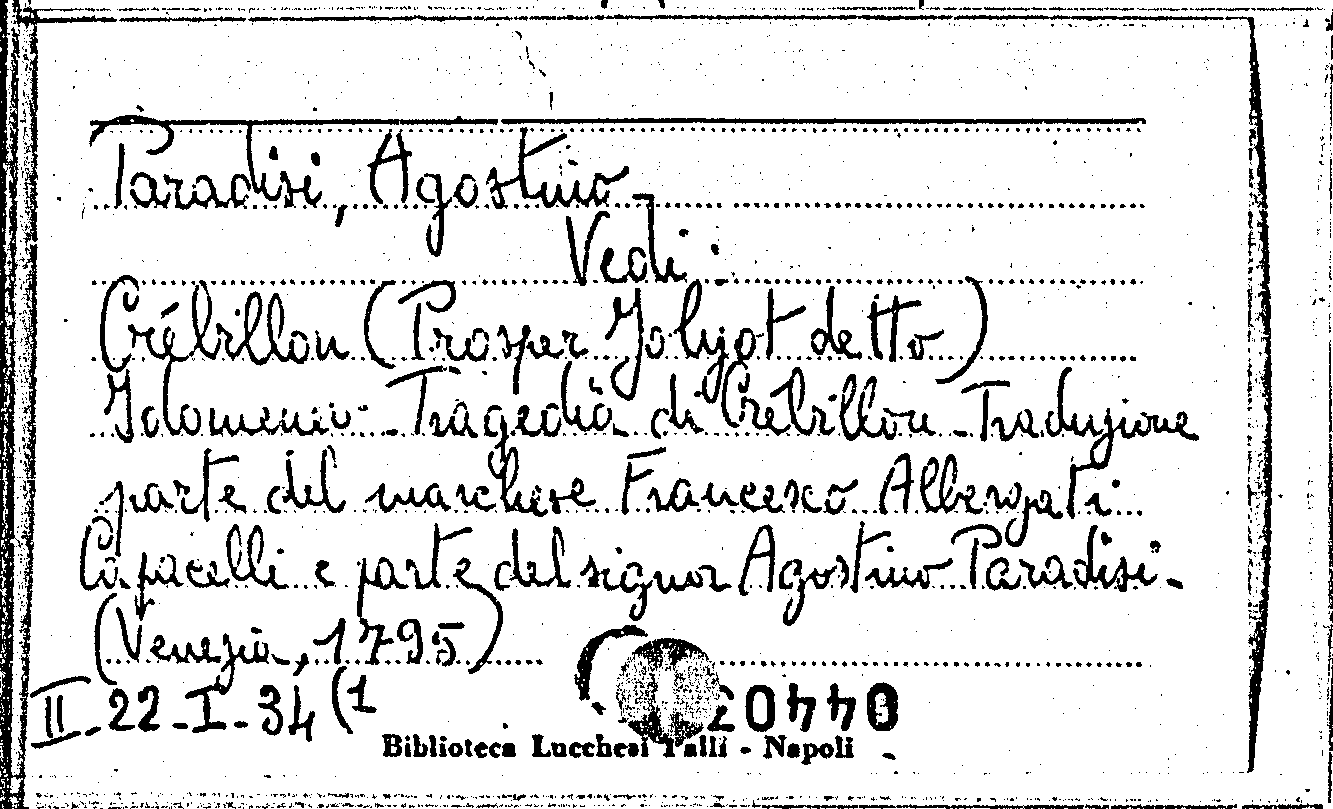 Paradisi, Agostino -
Vedi :
Crébillon (Prosper Jolyot detto)
Idomeneo - Tragedia di Crébillon - Traduzione
parte del marchese Francesco Albergati
Capacelli e parte del signor Agostino Paradisi -
(Venezia, 1795)
II - 22 - I - 34 (1
Biblioteca Lucchesi Palli - Napoli -